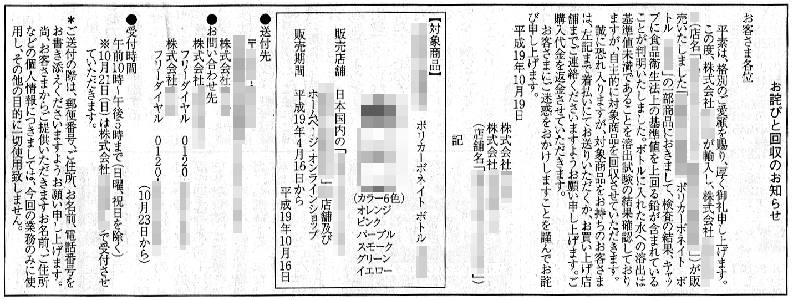 お詫びと回収のお知らせ
お客さま各位
平素は、格別のご愛顧を賜り、厚く御礼申し上げます。
この度、株式会社 が輸入し、株式会社
(店名「 」)が販
売いたしました「 ポリカーボネイト ボ
トル 」の一部商品におきまして、検査の結果、キャッ
プに食品衛生法上の基準値を上回る鉛が含まれている
ことが判明いたしました。ボトルに入れた水への溶出は
基準値未満であることを溶出試験の結果確認しており
ますが、自主的に対象商品を回収させていただきます。
誠に恐れ入りますが、対象商品をお持ちのお客さま
は、左記まで着払いにてお送りいただくか、お買い上げ店
舗までご連絡くださいますようお願い申し上げます。ご
購入代金を返金させていただきます。
お客さまにご迷惑をおかけしますことを謹んでお詫
び申し上げます。
平成19年10月19日
株式会社
株式会社
(店舗名「 」)
記
【対象商品】
ポリカーボネイト ボトル
(カラー6色)
オレンジ
ピンク
パープル
スモーク
グリーン
イエロー
販売店舗 日本国内の「 」店舗及び
ホームページ・オンラインショップ
販売期間 平成19年4月16日から
平成19年10月16日
●送付先
〒
株式会社
●お問い合わせ先
株式会社
フリーダイヤル 0120
株式会社
フリーダイヤル 0120
(10月23日から)
●受付時間
午前10時~午後5時まで(日曜、祝日を除く)
※10月21日(日)は株式会社 で受付させ
ていただきます。
*ご送付の際は、郵便番号、ご住所、お名前、電話番号を
お書き添えくださいますようお願い申し上げます。
尚、お客さまからご提供いただきますお名前、ご住所
などの個人情報につきましては、今回の業務のみに使
用し、その他の目的に一切使用致しません。